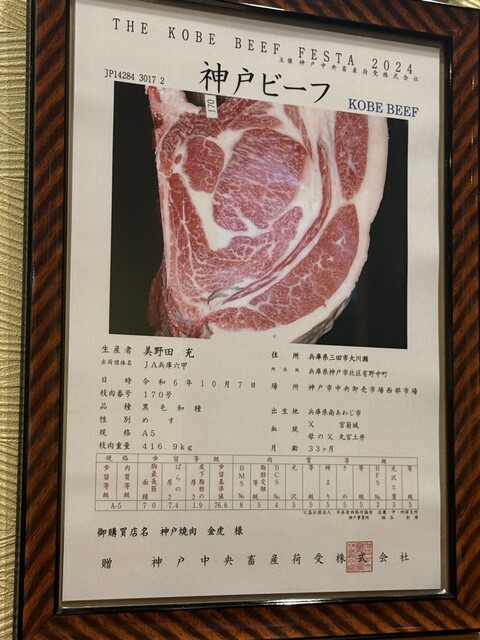 THE KOBE BEEF FESTA 2024
主催 神戸中央畜産荷受株式会社
JP14284 3017 2
神戸ビーフ
KOBE BEEF
170
生産者 美野田 充
出荷団体名 JA兵庫六甲
日時 令和6年10月7日
枝肉番号 170号
品種 黒毛和種
性別 めす
規格 A5
枝肉重量 416.9kg
住所 兵庫県三田市大川瀬
所在地 兵庫県神戸市北区有野中町
場所 神戸市中央卸売市場西部市場
出生地 兵庫県南あわじ市
血統 父 宮菊城
母の父 丸宮土井
月齢 33ヶ月
規格 歩留等級 肉質等級
歩留等級 肉質等級 胸最長筋面積 ばらの厚さ 皮下脂肪の厚さ 歩留基準値 BMS № 脂肪交雑等級 BCS № 光沢 等級 締まり きめ 等級 BFS № 光沢と質 等級
A-5 70 7.4 1.9 76.6 8 5 4 5 5 5 5 5 3 5 5
公益社団法人 日本食肉格付協会 近畿・中・四国支所
神戸事業所
御購買店名 神戸焼肉 金虎 様
贈 神戸中央畜産荷受株式会社